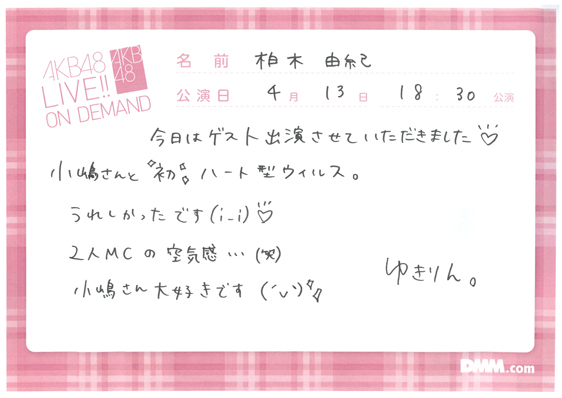 AKB48
LIVE!!
ON DEMAND
AKB
48
名前 柏木 由紀
公演日 4月 13日 18:30 公演
今日はゲスト出演させていただきました♡
小嶋さんと初ハート型ウィルス。
うれしかったです(i_i)♡
2人MCの空気感…(笑)
小嶋さん大好きです(´ᴗ`)
ゆきりん。
DMM.com